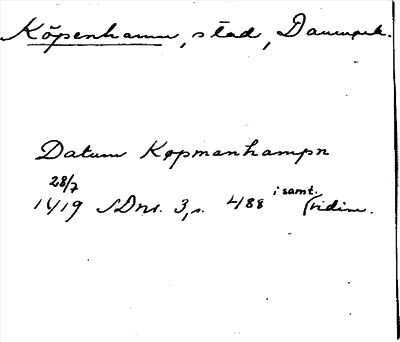 Köpenhamn, stad, Danmark.
Datum Køpmanhampn
28/7
1419 SDns. 3, s. 488 i samt.
(vidim.